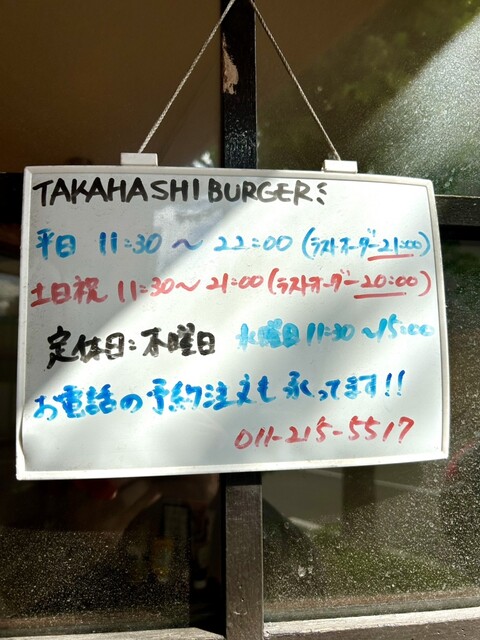 TAKAHASHI BURGER:
平日 11:30 〜 22:00 (ラストオーダー21:00)
土日祝 11:30〜21:00 (ラストオーダー20:00)
定休日:木曜日 水曜日 11:30 〜15:00
お電話の予約注文も承ってます!!
011-215-5517